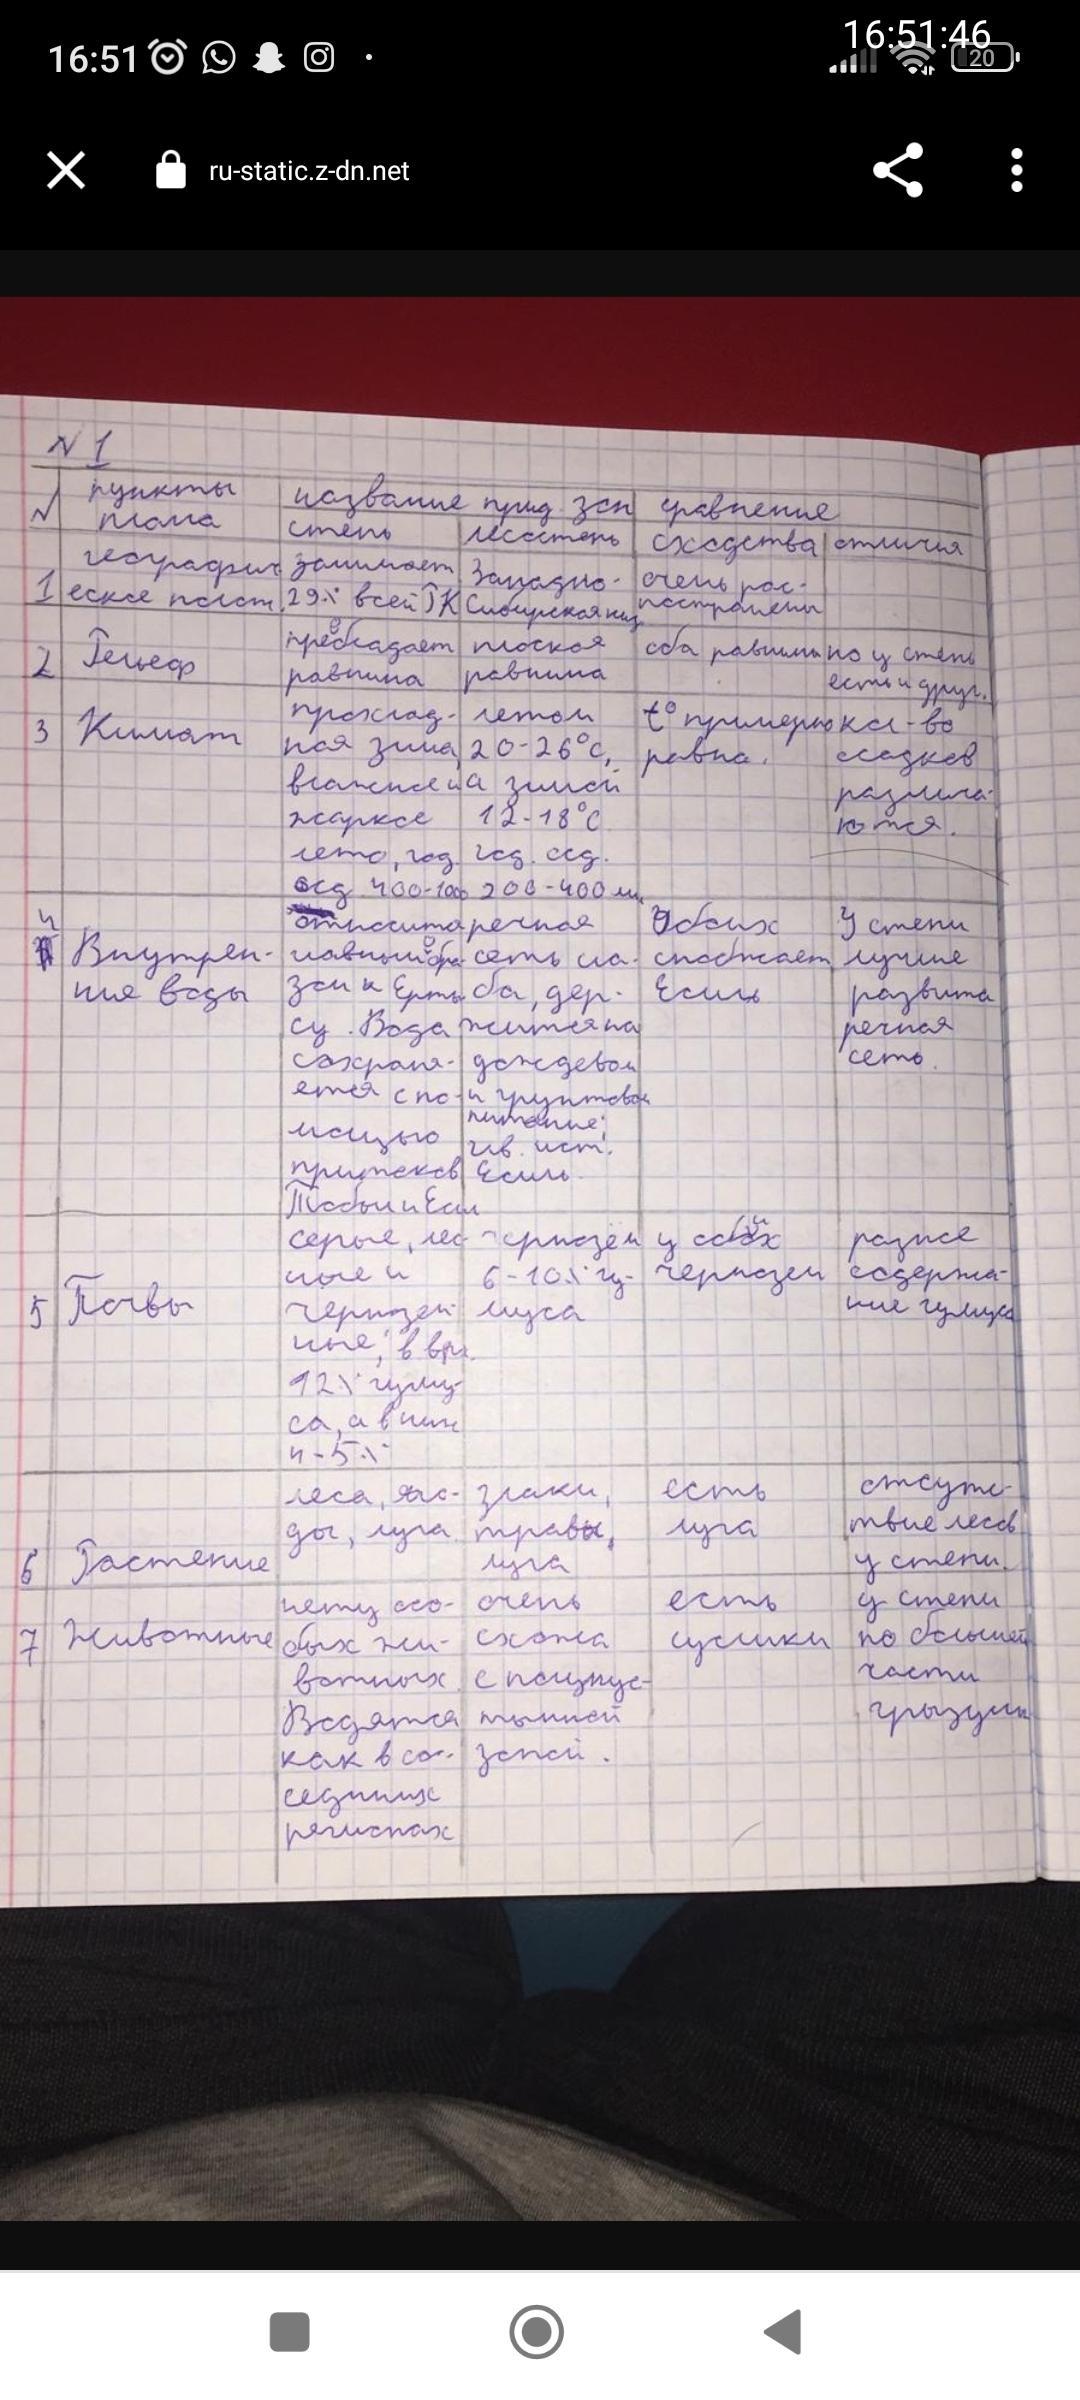 16:51
16:51:46
20
ru-static.z-dn.net
N 1
N пункты плана
название прид. зон
сравнение
степь
лесостепь
сходства
отличия
1 географич еское полож.
занимает 29% всей РК
Западно- Сибирская низ.
очень рас- пространены
2 Рельеф
преобладает равнина
плоская равнина
оба равнины
но у степь есть и друг.
3 Климат
прохлад- ная зима, влажное и жаркое лето, год. осд. 400-100
летом 20-26°C, а зимой 12-18°C год. осд. 200-400 мм
t° примерно равна.
кол-во осадков различа- ются.
4 Внутрен- ние воды
относита главным обра зом к Ерты су. Вода сохраня- ется с по- мощью притоков Тобол и Есил
речная сеть сла- ба, дер- жится на дождевом и грунтовом питание; гл. ист. Есиль.
Обоих снабжает Есиль
У степи лучше развита речная сеть.
5 Почвы
серые, лес- ные и чернозем- ные; в врх. 12% гуму- са, а в ниж 4-5%
чернозём 6-10% гу- муса
у обоих чернозем
разное содержа- ние гумуса
6 Растение
леса, яго- ды, луга
злаки, травы, луга
есть луга
отсутс- твие лесов у степи.
7 Животные
нету осо- бых жи- вотных. Водятся как в со- седних регионах
очень схожа с полупус- тынной зоной.
есть суслики
у степи по большей части грызуны